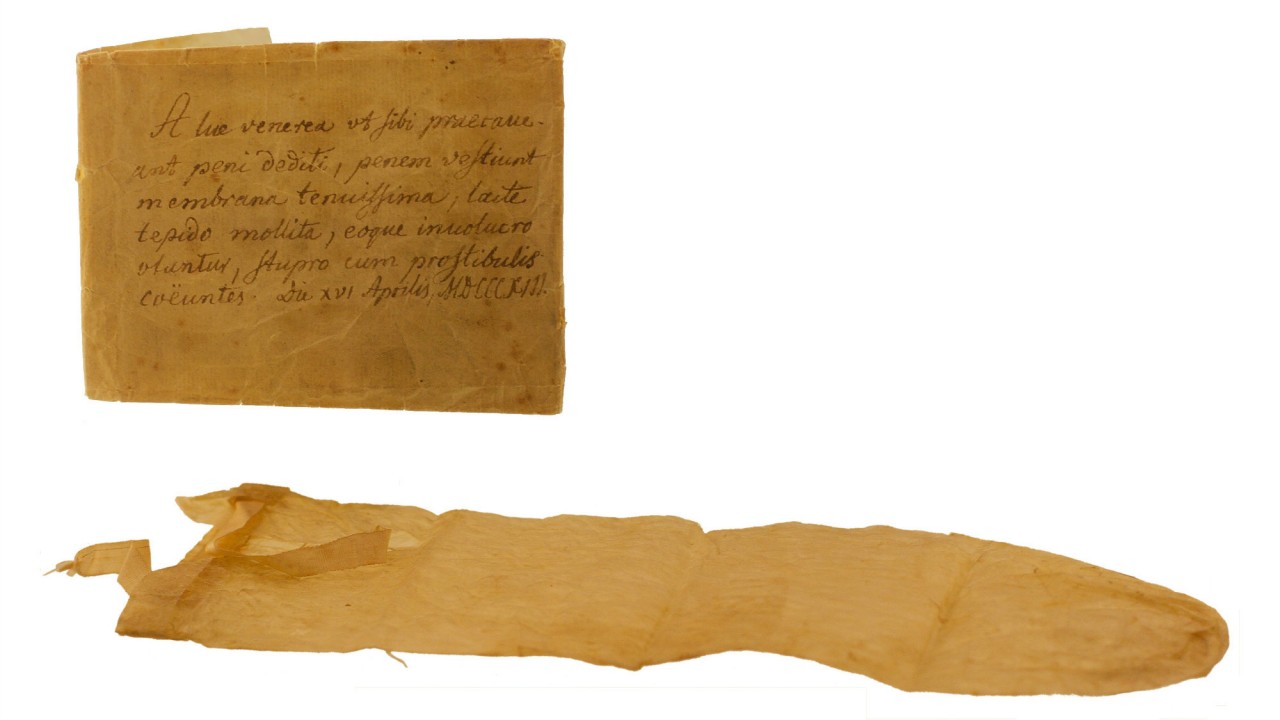 A lue venerea vt sibi praecaue-
ant peni dediti, penem vestiunt
membrana tenuissima, lacte
tepido mollita, eoque inuolucro
vtantur, stupro cum prostibulis
coëuntes. Die XVI Aprilis, MDCCCXIII.